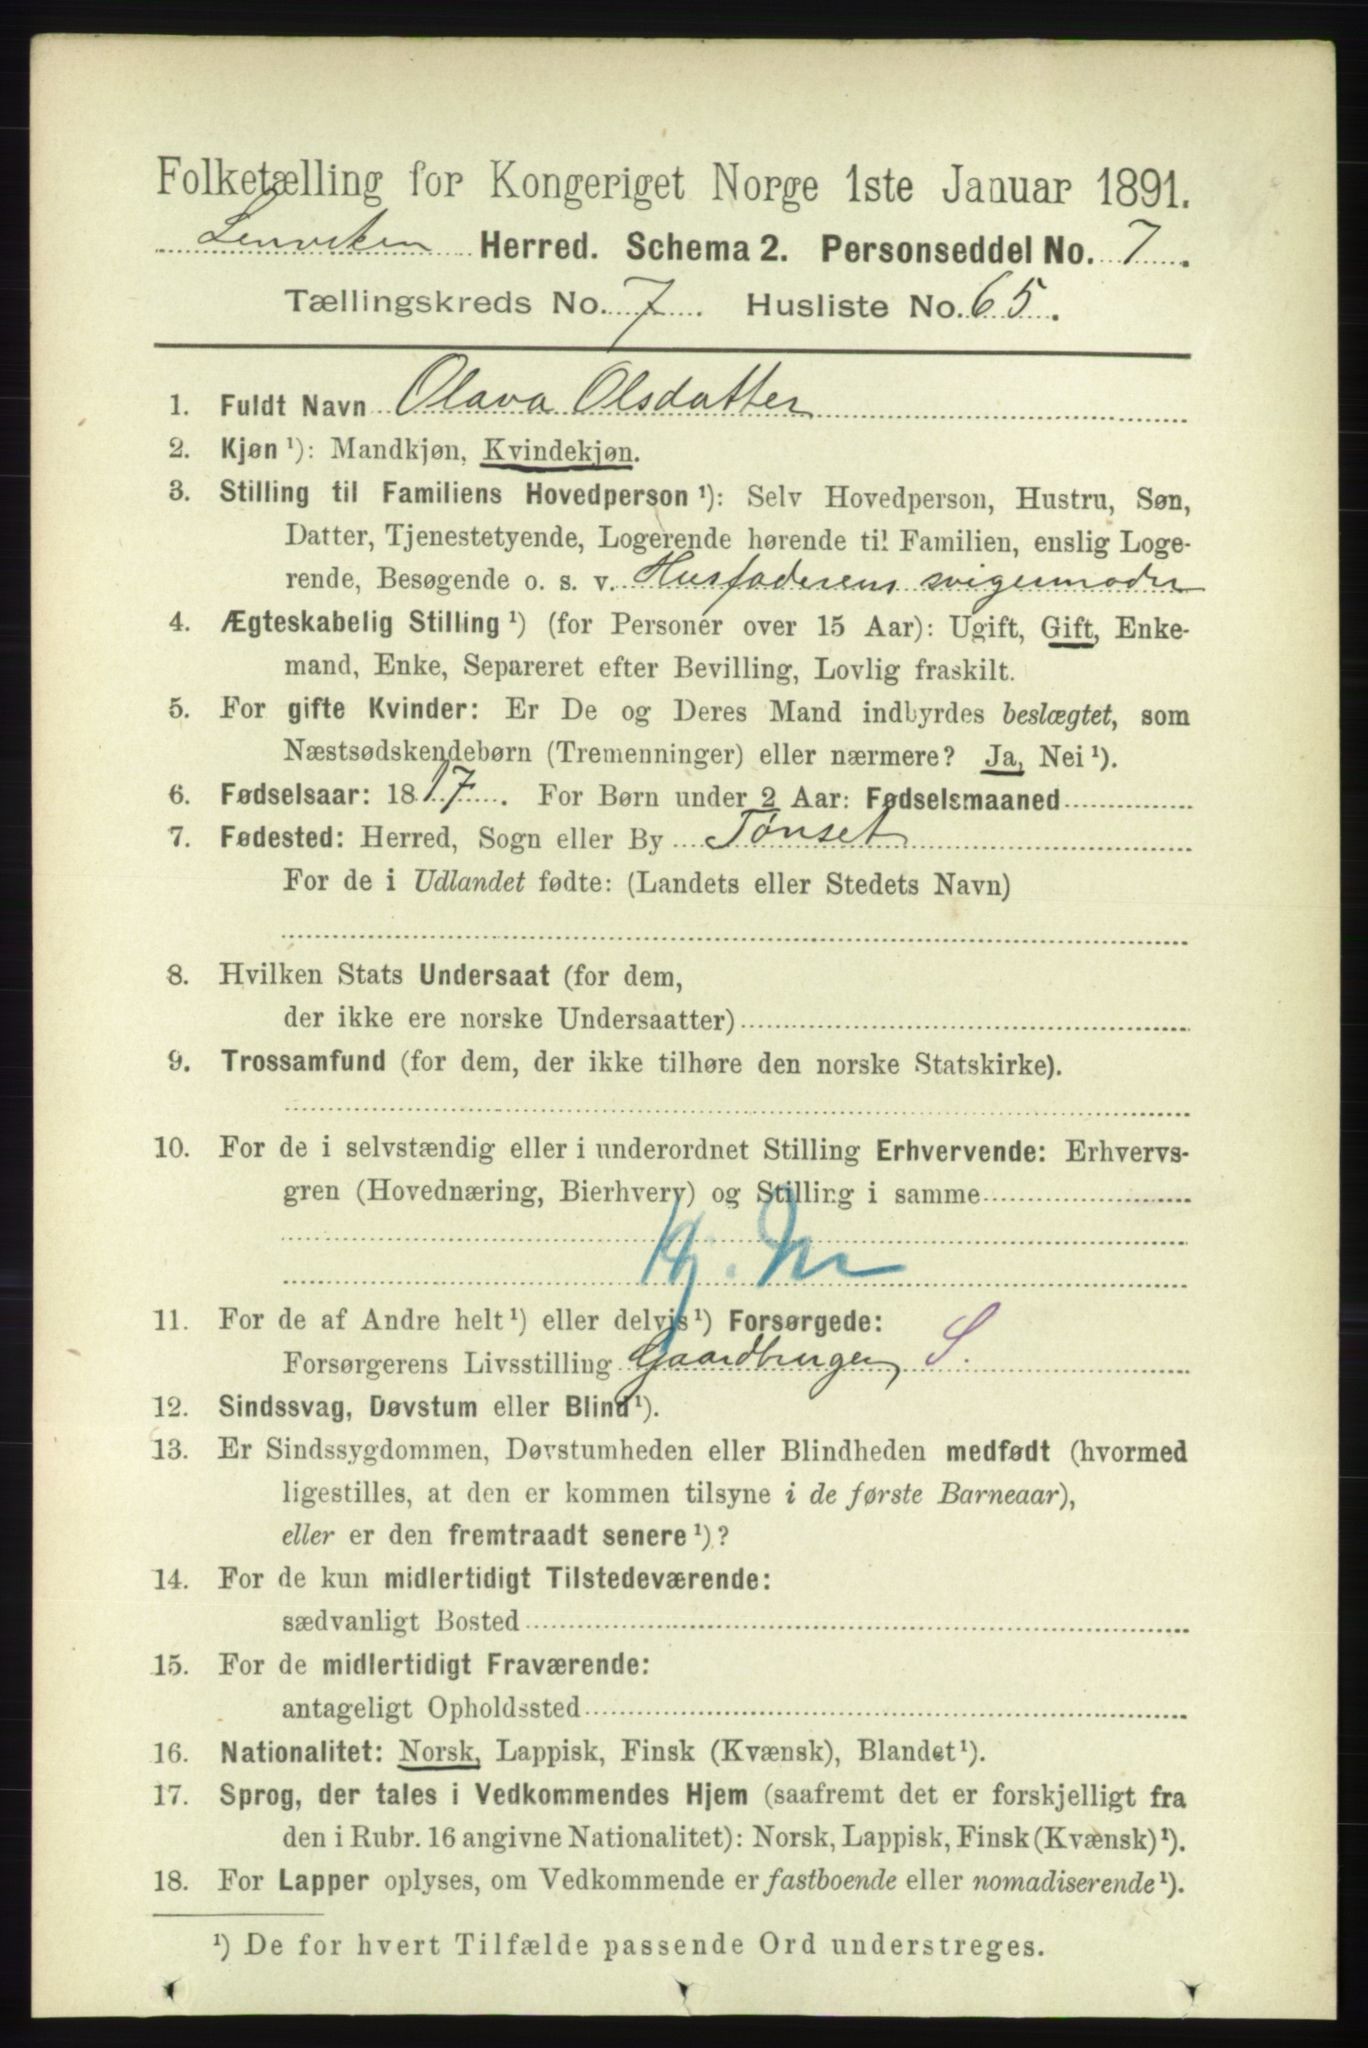 Folketælling for Kongeriget Norge 1ste Januar 1891.
Lenviken Herred. Schema 2. Personseddel No. 7.
Tællingskreds No. 7. Husliste No. 65.
1. Fuldt Navn Olava Olsdatter
2. Kjøn ¹): Mandkjøn, Kvindekjøn.
3. Stilling til Familiens Hovedperson ¹): Selv Hovedperson, Hustru, Søn,
Datter, Tjenestetyende, Logerende hørende til Familien, enslig Loge-
rende, Besøgende o. s. v. Husfaderens svigermoder
4. Ægteskabelig Stilling ¹) (for Personer over 15 Aar): Ugift, Gift, Enke-
mand, Enke, Separeret efter Bevilling, Lovlig fraskilt.
5. For gifte Kvinder: Er De og Deres Mand indbyrdes beslægtet, som
Næstsødskendebørn (Tremenninger) eller nærmere? Ja, Nei ¹).
6. Fødselsaar: 1817. For Børn under 2 Aar: Fødselsmaaned
7. Fødested: Herred, Sogn eller By Tønset
For de i Udlandet fødte: (Landets eller Stedets Navn)
8. Hvilken Stats Undersaat (for dem,
der ikke ere norske Undersaatter)
9. Trossamfund (for dem, der ikke tilhøre den norske Statskirke).
10. For de i selvstændig eller i underordnet Stilling Erhvervende: Erhvervs-
gren (Hovednæring, Bierhverv) og Stilling i samme
11. For de af Andre helt ¹) eller delvis ¹) Forsørgede:
Forsørgerens Livsstilling Gaardbruger, S.
12. Sindssvag, Døvstum eller Blind ¹).
13. Er Sindssygdommen, Døvstumheden eller Blindheden medfødt (hvormed
ligestilles, at den er kommen tilsyne i de første Barneaar),
eller er den fremtraadt senere ¹)?
14. For de kun midlertidigt Tilstedeværende:
sædvanligt Bosted
15. For de midlertidigt Fraværende:
antageligt Opholdssted
16. Nationalitet: Norsk, Lappisk, Finsk (Kvænsk), Blandet ¹).
17. Sprog, der tales i Vedkommendes Hjem (saafremt det er forskjelligt fra
den i Rubr. 16 angivne Nationalitet): Norsk, Lappisk, Finsk (Kvænsk) ¹).
18. For Lapper oplyses, om Vedkommende er fastboende eller nomadiserende ¹).
¹) De for hvert Tilfælde passende Ord understreges.